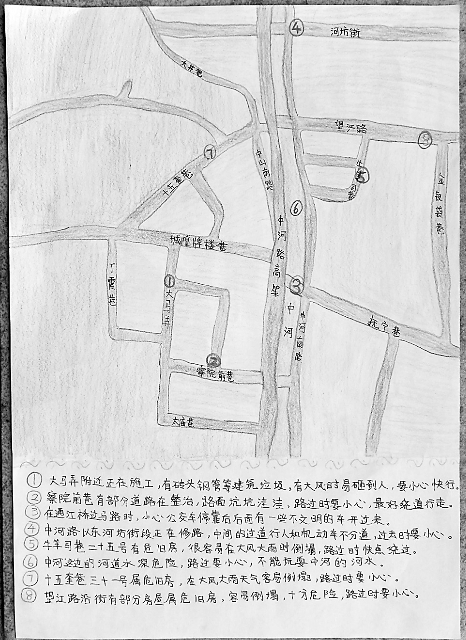 ④
河坊街
大井巷
望江路
⑧
⑦
十五奎巷
中山南路
牛羊司巷
⑤
金钗袋巷
⑥
中河路高架
城隍牌楼巷
①
大马弄
丁衙巷
③
中河
中河南路
抚宁巷
②
察院前巷
太庙巷
① 大马弄附近正在施工,有砖头钢筋等建筑垃圾,有大风时易砸到人,要小心快行。
② 察院前巷有部分道路在整治,路面坑坑洼洼,路过时要小心,最好绕道行走。
③ 在通江桥边马路时,小心公交车停靠后后面有一些不文明的车开过来。
④ 中河路以东河坊街段正在修路,中间的过道行人和机动车不分道,过去时要小心。
⑤ 牛羊司巷二十五号有危旧房,很容易在大风大雨时倒塌,路过时快点绕过。
⑥ 中河边边的河道水深危险,路过要小心,不能玩耍中河的河水。
⑦ 十五奎巷三十一号属危旧房,在大风大雨天气容易倒塌,路过时要小心。
⑧ 望江路沿街有部分房屋属危旧房,容易倒塌,十方危险,路过时要小心。